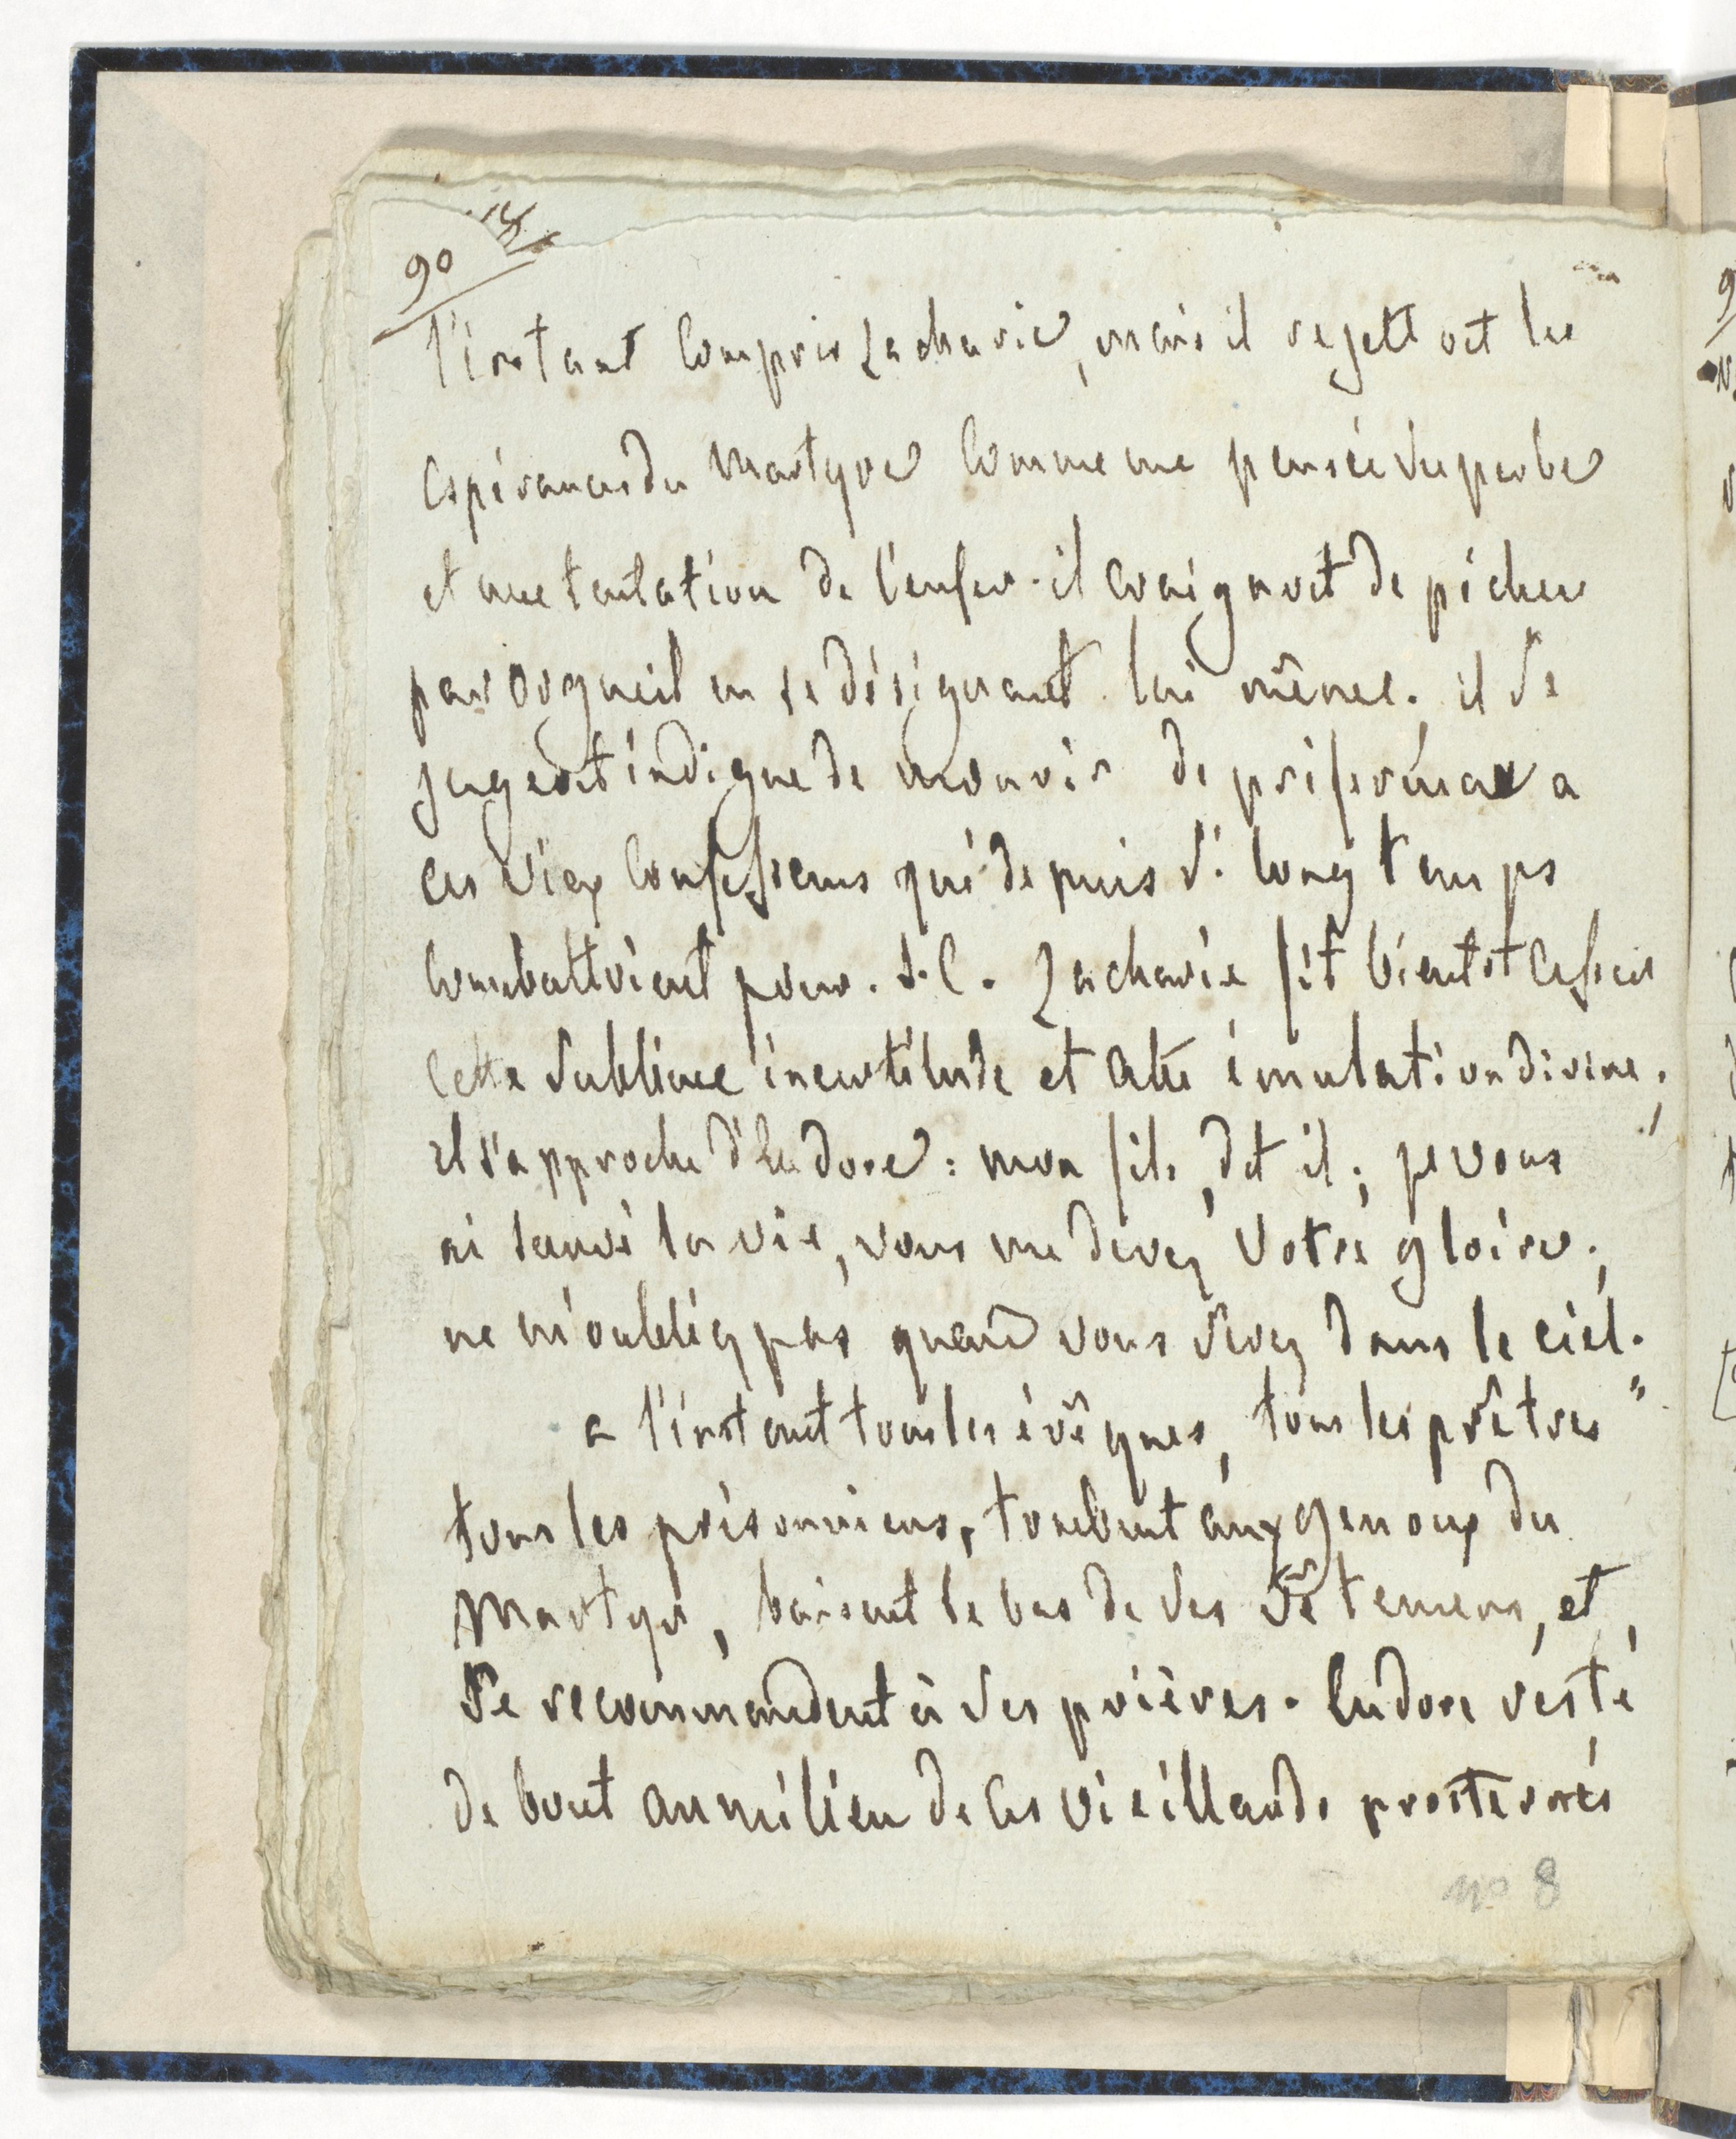 90
l'instant compris Zacharie, mais il rejettoit les
espérances du martyre comme une pensée superbe
et une tentation de l'enfer. il craignoit de pécher
par orgueil en se désignant lui même. il se
jugeoit indigne de mourir de préférence a
ces vieux confesseurs qui depuis si long temps
combattoient pour. J. C. Zacharie fit bientôt cesser
cette sublime incertitude et cette émulation divine;
il s'approche d'Eudore: mon fils, dit il; je vous
ai sauvé la vie, vous me devez votre gloire;
ne m'oubliez pas quand vous serez dans le ciel.
a l'instant tous les évêques, tous les prêtres"
tous les prisonniers, tombent aux genoux du
martyr, baisent le bas de ses vêtemens, et,
se recommandent à ses prières. Eudore resté
de bout au milieu de ces vieillards prosternés
no 8